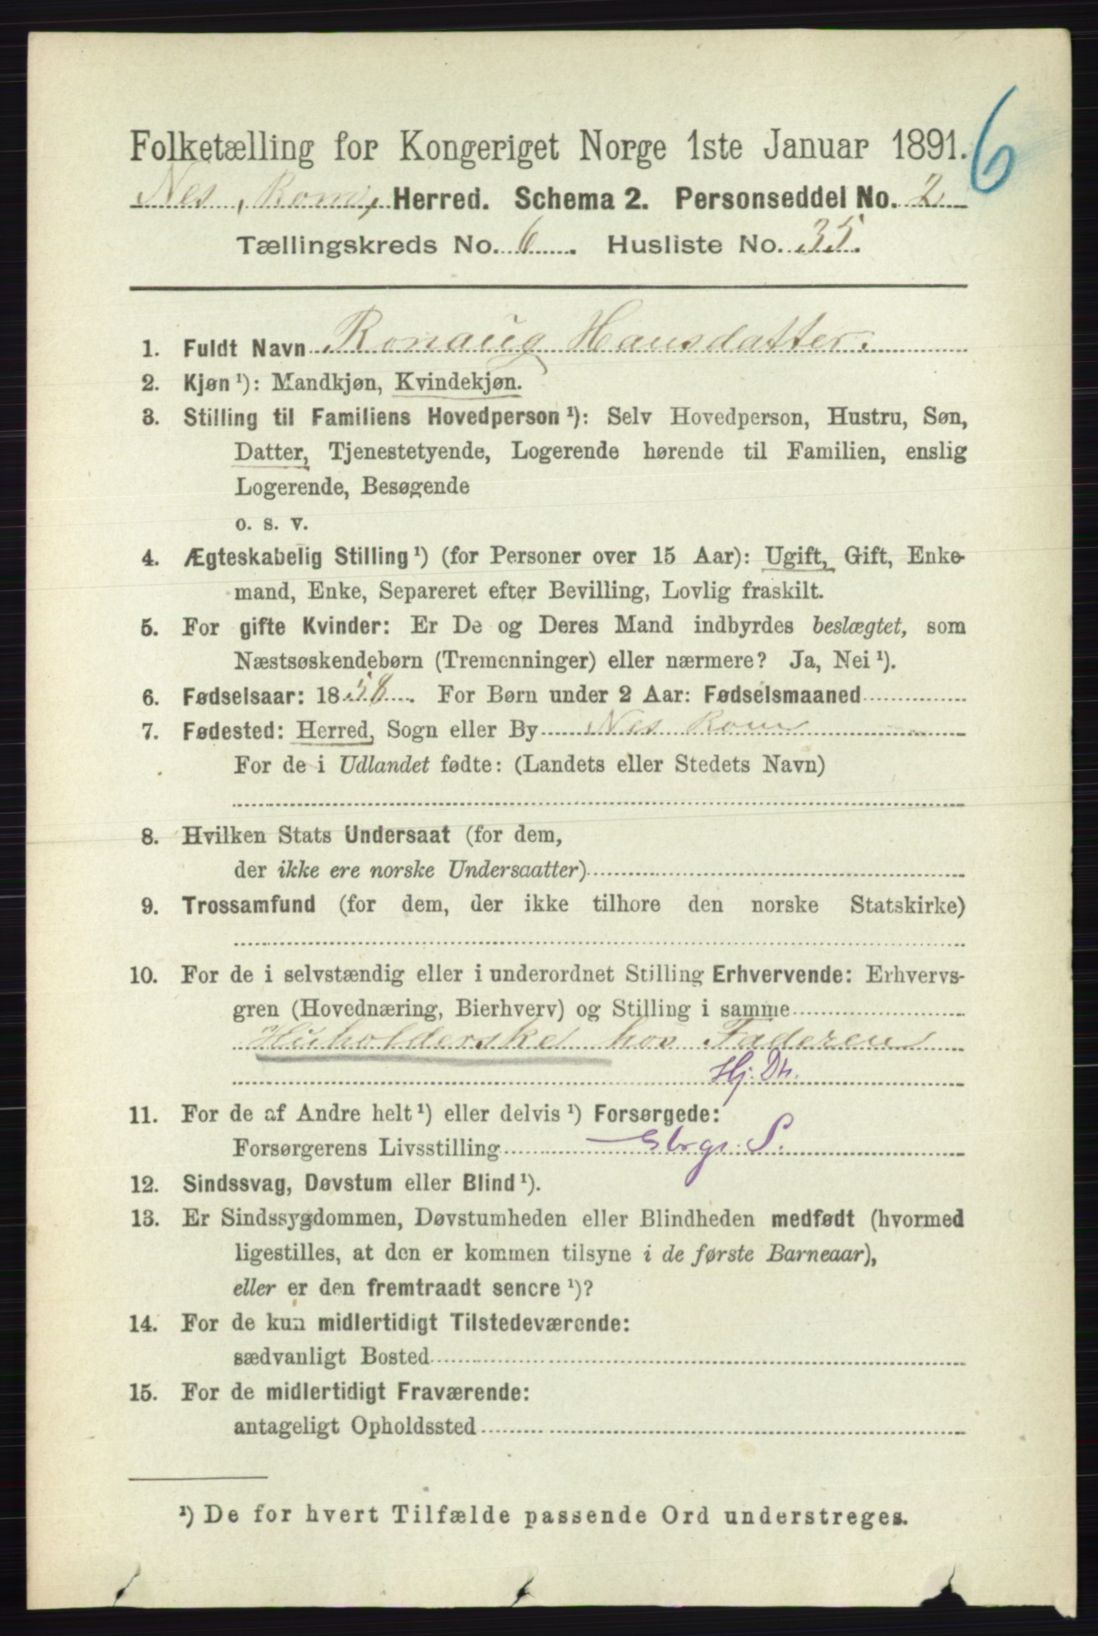 6
Folketælling for Kongeriget Norge 1ste Januar 1891.
Nes, Rom, Herred. Schema 2. Personseddel No. 2
Tællingskreds No. 6. Husliste No. 35.
1. Fuldt Navn Ronaug Hansdatter.
2. Kjøn¹): Mandkjøn, Kvindekjøn.
3. Stilling til Familiens Hovedperson¹): Selv Hovedperson, Hustru, Søn,
Datter, Tjenestetyende, Logerende hørende til Familien, enslig
Logerende, Besøgende
o. s. v.
4. Ægteskabelig Stilling¹) (for Personer over 15 Aar): Ugift, Gift, Enke-
mand, Enke, Separeret efter Bevilling, Lovlig fraskilt.
5. For gifte Kvinder: Er De og Deres Mand indbyrdes beslægtet, som
Næstsøskendebørn (Tremenninger) eller nærmere? Ja, Nei¹).
6. Fødselsaar: 1858. For Børn under 2 Aar: Fødselsmaaned
7. Fødested: Herred, Sogn eller By Nes Rom
For de i Udlandet fødte: (Landets eller Stedets Navn)
8. Hvilken Stats Undersaat (for dem,
der ikke ere norske Undersaatter)
9. Trossamfund (for dem, der ikke tilhøre den norske Statskirke)
10. For de i selvstændig eller i underordnet Stilling Erhvervende: Erhvervs-
gren (Hovednæring, Bierhverv) og Stilling i samme
Huholderske hos Faderen
Hj. Dtr.
11. For de af Andre helt¹) eller delvis¹) Forsørgede:
Forsørgerens Livsstilling Gbrgr. S.
12. Sindssvag, Døvstum eller Blind¹).
13. Er Sindssygdommen, Døvstumheden eller Blindheden medfødt (hvormed
ligestilles, at den er kommen tilsyne i de første Barneaar),
eller er den fremtraadt senere¹)?
14. For de kun midlertidigt Tilstedeværende:
sædvanligt Bosted
15. For de midlertidigt Fraværende:
antageligt Opholdssted
¹) De for hvert Tilfælde passende Ord understreges.